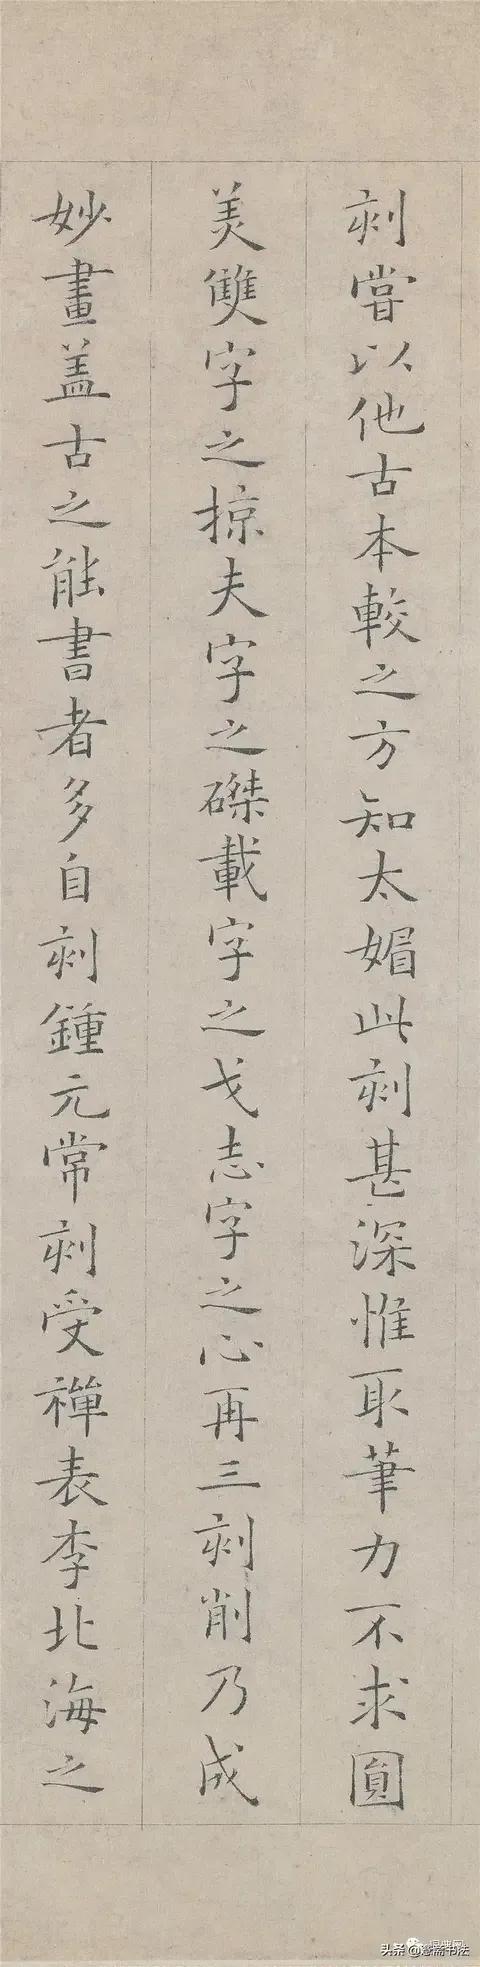 刻嘗以他古本較之方知太媚此刻甚深惟取筆力不求圓
美雙字之掠夫字之磔載字之戈志字之心再三刻削乃成
妙畫盖古之能書者多自刻鍾元常刻受禪表李北海之
头条@逸斋书法